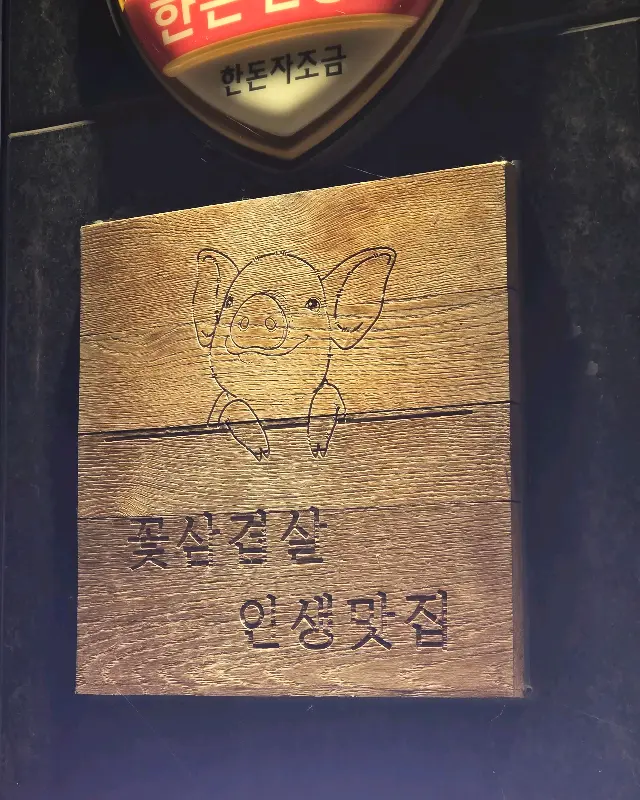 한돈
한돈자조금
꽃삼겹살
인생맛집